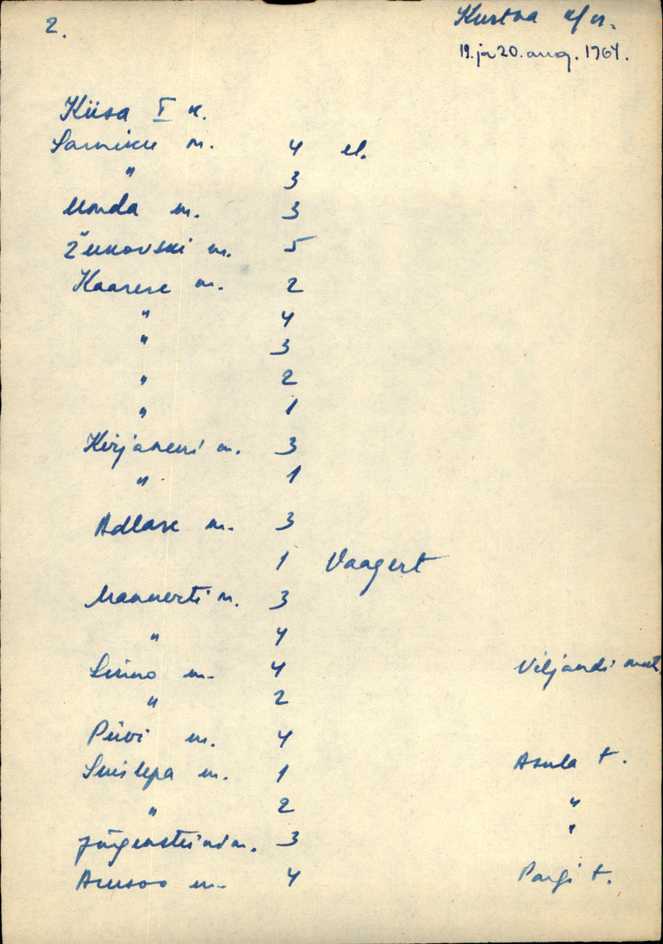 2.
Kurtna k/n.
19. ja 20. aug. 1964.
Kiisa I k.
Sarniku m. 4 el.
" 3
Unda m. 3
Žukovski m. 5
Kaarese m. 2
" 4
" 3
" 2
" 1
Kirjaneni m. 3
" 1
Adlase m. 3
1 Vaagert
Mannerti m. 3
" 4
Sinno m. 4 Viljandi mnt.
" 2
Piivi m. 4
Suislepa m. 1 Asula t.
" 2 "
Jürgensteini m. 3 "
Arusoo m. 4 Pargi t.